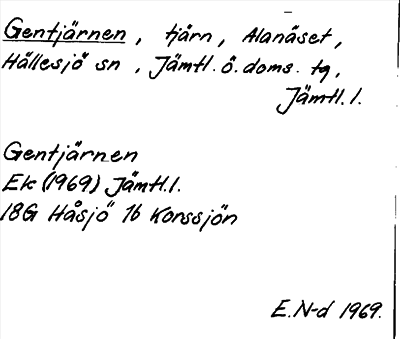 Gentjärnen, tjärn, Alanäset,
Hällesjö sn, Jämtl. ö. doms. tg,
Jämtl. l.
Gentjärnen
Ek (1969) Jämtl. l.
18G Håsjö 1b Korssjön
E. N-d 1969.